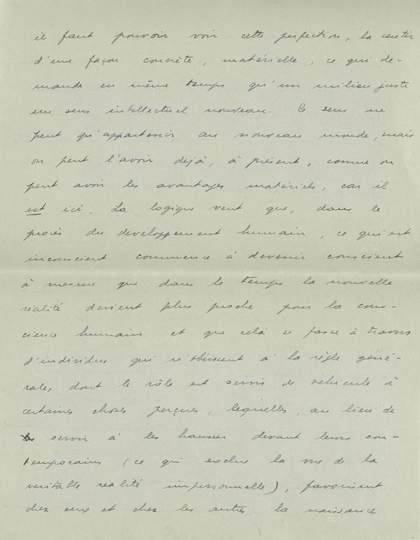 il faut pouvoir voir cette perfection, la sentir
d'une façon concrète, matérielle, ce qui de-
mande en même temps qu'un milieu juste
un sens intellectuel nouveau. Ce sens ne
peut qu'appartenir au nouveau monde, mais
on peut l'avoir déjà, à présent, comme on
peut avoir les avantages matériels, car il
est ici. La logique veut que, dans le
procès du développement humain, ce qui est
inconscient commence à devenir conscient
à mesure que dans le temps la nouvelle
réalité devient plus proche pour la cons-
cience humaine et que cela se passe à travers
d'individus qui obéissent à la règle géné-
rale, dont le rôle est servir de véhicule à
certaines choses perçues, lesquelles, au lieu de
servir à les hausser devant leurs con-
temporains (ce qui exclue la vue de la
véritable réalité impersonnelle), favorisent
chez eux et chez les autres la naissance